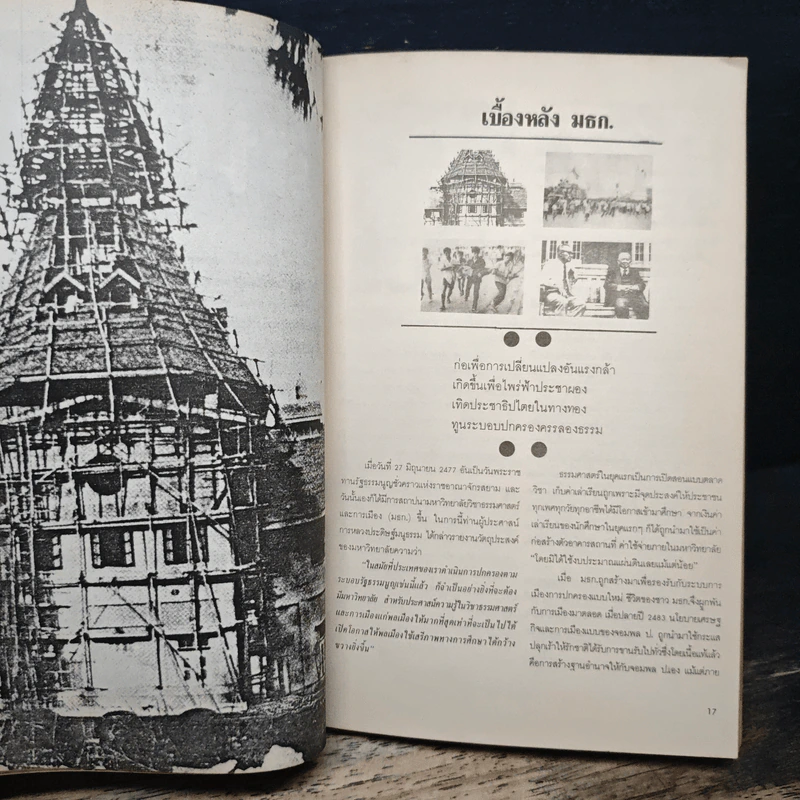 เบื้องหลัง มธก.
ก่อเพื่อการเปลี่ยนแปลงอันแรงกล้า
เกิดขึ้นเพื่อไพร่ฟ้าประชาผอง
เทิดประชาธิปไตยในทางทอง
ทูนระบอบปกครองครรลองธรรม
เมื่อวันที่ 27 มิถุนายน 2477 อันเป็นวันพระราช
ทานรัฐธรรมนูญชั่วคราวแห่งราชอาณาจักรสยาม และ
วันนั้นเองก็ได้มีการสถาปนามหาวิทยาลัยวิชาธรรมศาสตร์
และการเมือง (มธก.) ขึ้น ในการนี้ท่านผู้ประศาสน์
การหลวงประดิษฐ์มนูธรรม ได้กล่าวรายงานวัตถุประสงค์
ของมหาวิทยาลัยความว่า
"ในสมัยที่ประเทศของเราดำเนินการปกครองตาม
ระบอบรัฐธรรมนูญเช่นนี้แล้ว ก็จำเป็นอย่างยิ่งที่จะต้อง
มีมหาวิทยาลัย สำหรับประศาสน์ความรู้ในวิชาธรรมศาสตร์
และการเมืองแก่พลเมืองให้มากที่สุดเท่าที่จะเป็นไปได้
เปิดโอกาสให้พลเมืองใช้เสรีภาพทางการศึกษาได้กว้าง
ขวางยิ่งขึ้น"
ธรรมศาสตร์ในยุคแรกเป็นการเปิดสอนแบบตลาด
วิชา เก็บค่าเล่าเรียนถูกเพราะมีจุดประสงค์ให้ประชาชน
ทุกเพศทุกวัยทุกอาชีพได้มีโอกาสเข้ามาศึกษา จากเงินค่า
เล่าเรียนของนักศึกษาในยุคแรกๆ ก็ได้ถูกนำมาใช้เป็นค่า
ก่อสร้างตัวอาคารสถานที่ ค่าใช้จ่ายภายในมหาวิทยาลัย
"โดยมิได้ใช้งบประมาณแผ่นดินเลยแม้แต่น้อย"
เมื่อ มธก.ถูกสร้างมาเพื่อรองรับกับระบบการ
เมืองการปกครองแบบใหม่ ชีวิตของชาว มธก.จึงผูกพัน
กับการเมืองมาตลอด เมื่อปลายปี 2483 นโยบายเศรษฐ
กิจและการเมืองแบบของจอมพล ป. ถูกนำมาใช้กระแส
ปลุกเร้าให้รักชาติได้รับการขานรับไปทั่วซึ่งโดยเนื้อแท้แล้ว
คือการสร้างฐานอำนาจให้กับจอมพล ป.เอง แม้แต่ภาย
17